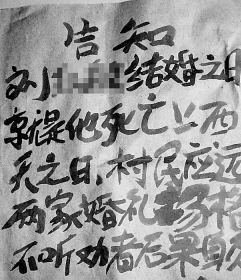 告知
刘 结婚之日
就是他死亡上西
天之日，村民应远
两家婚礼场格
不听劝者后果自